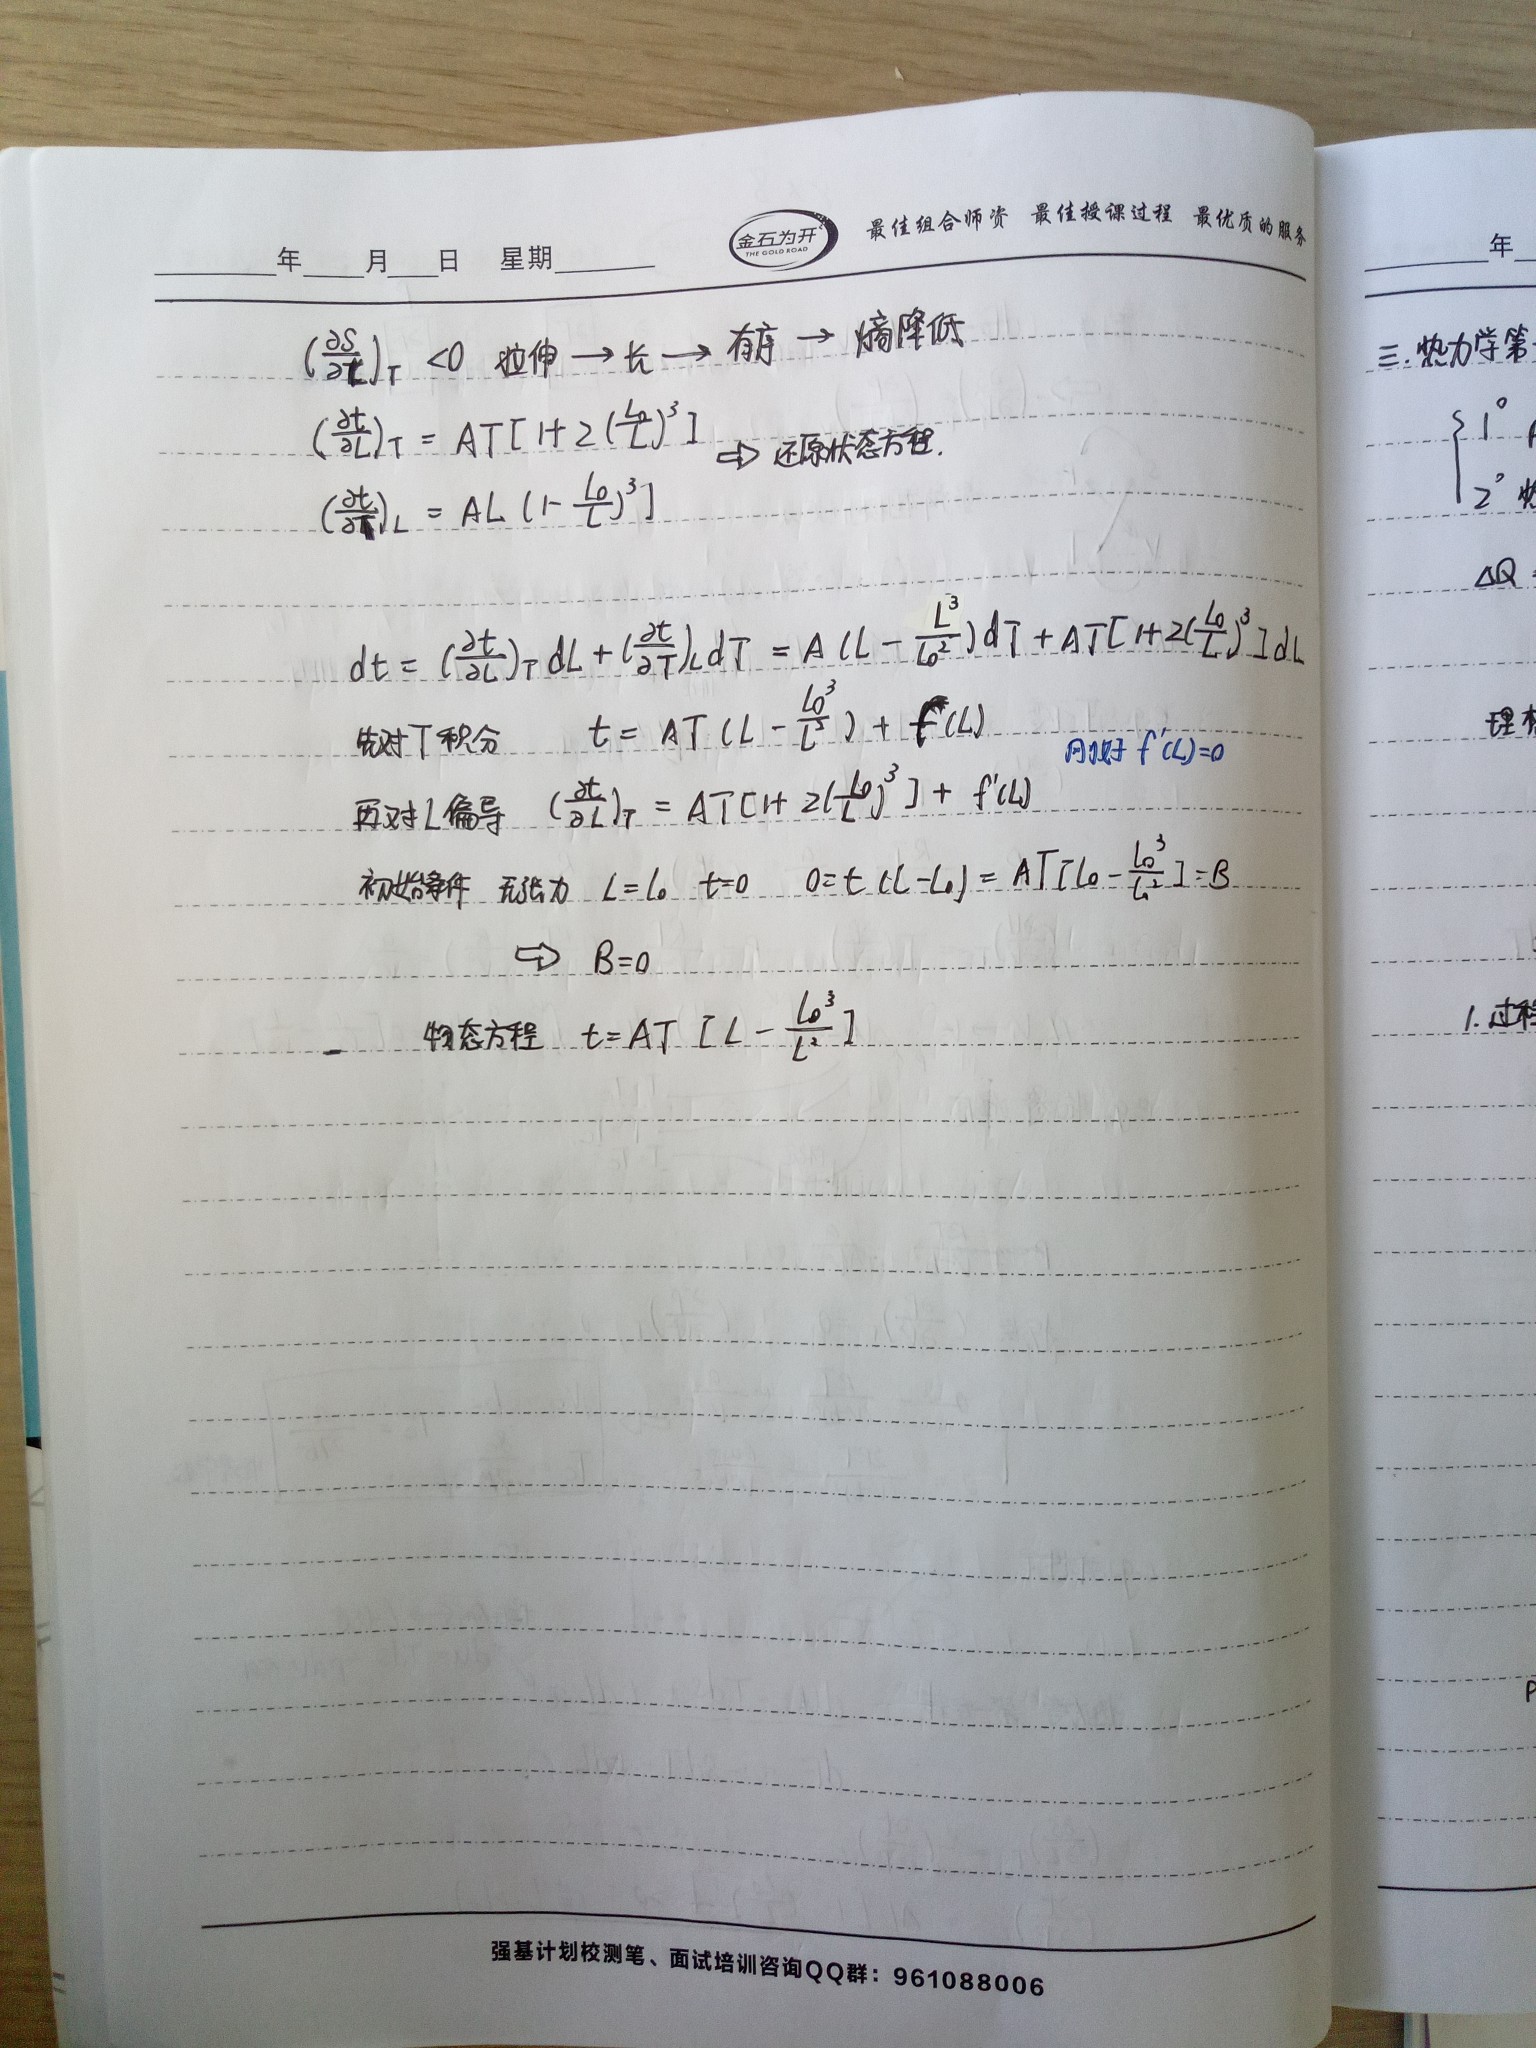 ____年____月____日 星期____ 金石为开 THE GOLD ROAD 最佳组合师资 最佳授课过程 最优质的服务
(∂S/∂L)_T <0 拉伸 → 长 → 有序 → 熵降低
(∂t/∂L)_T = AT[1+2(L₀/L)³]
⇨ 还原状态方程.
(∂t/∂T)_L = AL(1-L₀/L)³]
dt = (∂t/∂L)_T dL + (∂t/∂T)_L dT = A(L - L³/L₀²)dT + AT[1+2(L₀/L)³]dL
先对T积分 t = AT(L - L₀³/L²) + f(L)
f'(L)=0
再对L偏导 (∂t/∂L)_T = AT[1+2(L₀/L)³] + f'(L)
初始条件 无张力 L=L₀ t=0 0=t(L-L₀) = AT[L₀ - L₀³/L₀²]=B
⇨ B=0
物态方程 t=AT [L - L₀³/L²]
强基计划校测笔、面试培训咨询QQ群：961088006
年
三.热力学第
1°
2°
ΔQ
理
1.过程
P